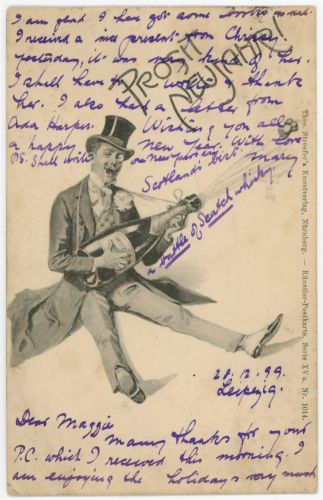 28.12.99.
Leipzig.
Dear Maggie
Many thanks for your
P.C. which I received this morning. I
am enjoying the holidays very much
I am glad I have got some books to read.
I received a nice present from
yesterday, it was very kind of her.
I shall have to write & thank
her. I also had a letter from
Ada Harper. Wishing you all
a happy New Year. With love
PS. Shall write on New Year's day Mary
Scotland's best
a bottle of Scotch whisky
PROSIT
NEUJAHR!
Theo Stroefer's Kunstverlag, Nürnberg. — Künstler-Postkarte, Serie XV a, Nr. 1014.